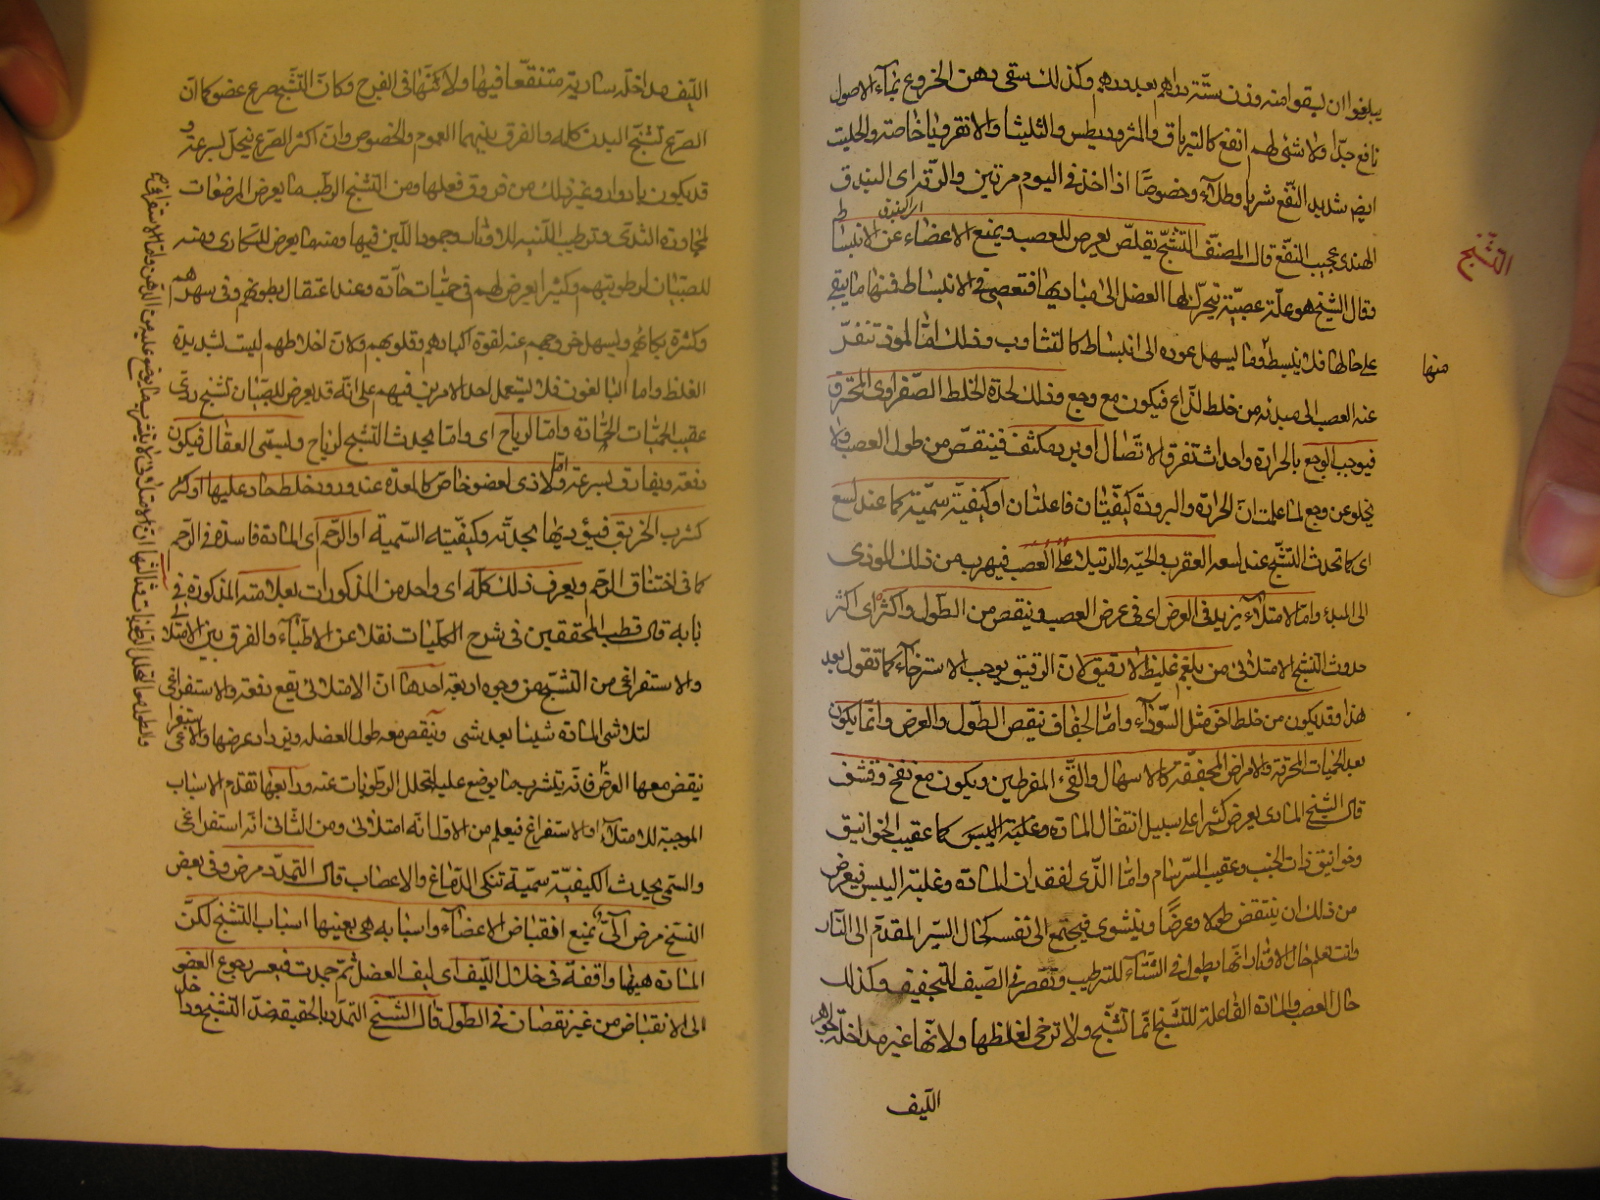 يبلغوا ان يسقوا منه وزن ستة دراهم بعد درهم وكذلك سقى دهن الخروع بماء الاصول
نافع جدا ولا شئ لهم انفع كالترياق والمثروديطوس والثليثا والانقرويا خاصة والحلتيت
ايض شديد النفع شربا وطلاء وخصوصا اذا اخذ في اليوم مرتين والرتة اى البندق
الهندى عجيب النفع قال المصنف التشنج تقلص يعرض للعصب ويمنع الاعضاء عن الانبساط
التشنج
وقال الشيخ هو علة عصبية يتحرك لها العضل الى مباديها فتعصى في الانبساط فمنها ما يبقى
على حالها فلا ينبسط ومنها يسهل عوده الى انبساط كالتثاوب وذلك اما لموذ تنفر
منها
عنه العصب الى مبدئه من خلط لذاع فيكون مع وجع وذلك لحدة الخلط الصفراوى المحترق
فيوجب الوجع بالحرارة واحداث تفرق الاتصال او برد مكثف فينقص من طول العصب ولا
يخلو عن وجع لما علمت ان الحرارة والبرودة كيفيتان فاعلتان او كيفية سمية كما عند لسع
اى كما تحدث التشنج عند لسعه العقرب والحية والرتيلاء على العصب فيهرب من ذلك الموذى
الى المبدء واما لامتلاء يزيد في العرض اى في عرض العصب وينقص من الطول واكثره اى اكثر
حدوث التشنج الامتلائى من بلغم غليظ لا رقيق لان الرقيق يوجب الاسترخاء كما تقول بعد
هذا وقد يكون من خلط اخر مثل السوداء واما لجفاف ينقص الطول والعرض وانما يكون
بعد الحميات المحرقة والامراض المجففة كالاسهال والقئ المفرطين ويكون مع نفخ وقشف
قال الشيخ المادى يعرض كثيرا على سبيل انتقال المادة وغلبة اليبس كما عقيب الخوانيق
وخوانيق ذات الجنب وعقيب السرسام واما الذى لفقدان المادة وغلبة اليبس فيعرض
من ذلك ان ينتقض طولا وعرضا وينشوى فيجتمع الى نفسه كحال السير المقدم الى النار
وانت تعلم حال الاوتار انها يطول في الشتاء للترطيب وتقصر في الصيف للتجفيف وكذلك
حال العصب والمادة الفاعلة للتشنج انما تشنج ولا ترخى لغلظها ولانها غير مداخلة لجوهر
الليف
الليف مداخلة سارية متنقعا فيها ولا كنها في الفرج وكان التشنج صرع عضو كما ان
الصرع تشنج البدن كله والفرق بينهما العموم والخصوص وان اكثر الصرع ينحل بسرعة و
قد يكون بادوار وغير ذلك من فروق فعلها ومن التشنج الرطب ما يعرض المرضعات
لمجاورة الثدى وترطيب اللبنية للاوتار وجمود اللبن فيها ومنها يعرض للسكارى ومنه
للصبيان لرطوبتهم وكثيرا يعرض لهم في حميات حادة وعند اعتقال بطونهم وفى سهرهم
وكثرة بكائهم ويسهل خروجهم عنه لقوة اكبادهم وقلوبهم ولان اخلاطهم ليست شديدة
الغلظ واما البالغون فلا يسهل احد الامرين فيهم على انه قد يعرض للصبيان تشنج ردى
عقيب الحميات الحادة واما لرياح اى واما يحدث التشنج لرياح ويسمى العقال فيكون
دفعة ويفارق بسرعة واما لاذى لعضو خاص كالمعدة عند ورود خلط حاد عليها او كثر
كشرب الخربق فيؤذيها بحدته وكيفيته السمية او الرحم اى المادة فاسدة في الرحم
كما في اختناق الرحم ويعرف ذلك كله اى واحد من المذكورات بعلامته المذكورة في
بابه قال قطب المحققين في شرح الكليات نقلا عن الاطباء والفرق بين الامتلائى
والاستفراغى من التشنج من وجوه اربعة احدها ان الامتلائى يقع دفعة والاستفراغى
لتلاشى المادة شيئا بعد شى وينقص معه طول العضله ويزداد عرضها والاستفراغى
ينقض معها العرض فانه يتشرب ما يوضع عليه لتحلل الرطوبات عنه ورابعها تقدم الاسباب
الموجبة للامتلاء او الاستفراغ فيعلم من الاول انه امتلائى ومن الثانى انه استفراغى
والسمى يحدث الكيفية سمية تنكى الدماغ والاعصاب قال التمدد مرض وفى بعض
النسخ مرض آلى يمنع انقباض الاعضاء واسبابه هى بعينها اسباب التشنج لكن
المادة هيهنا واقفة في خلال الليف اى ليف العضل ثم جمدت فيعسر رجوع العضو
الى الانقباض من غير نقصان في الطول قال الشيخ التمدد بالحقيقة ضد التشنج وداخل